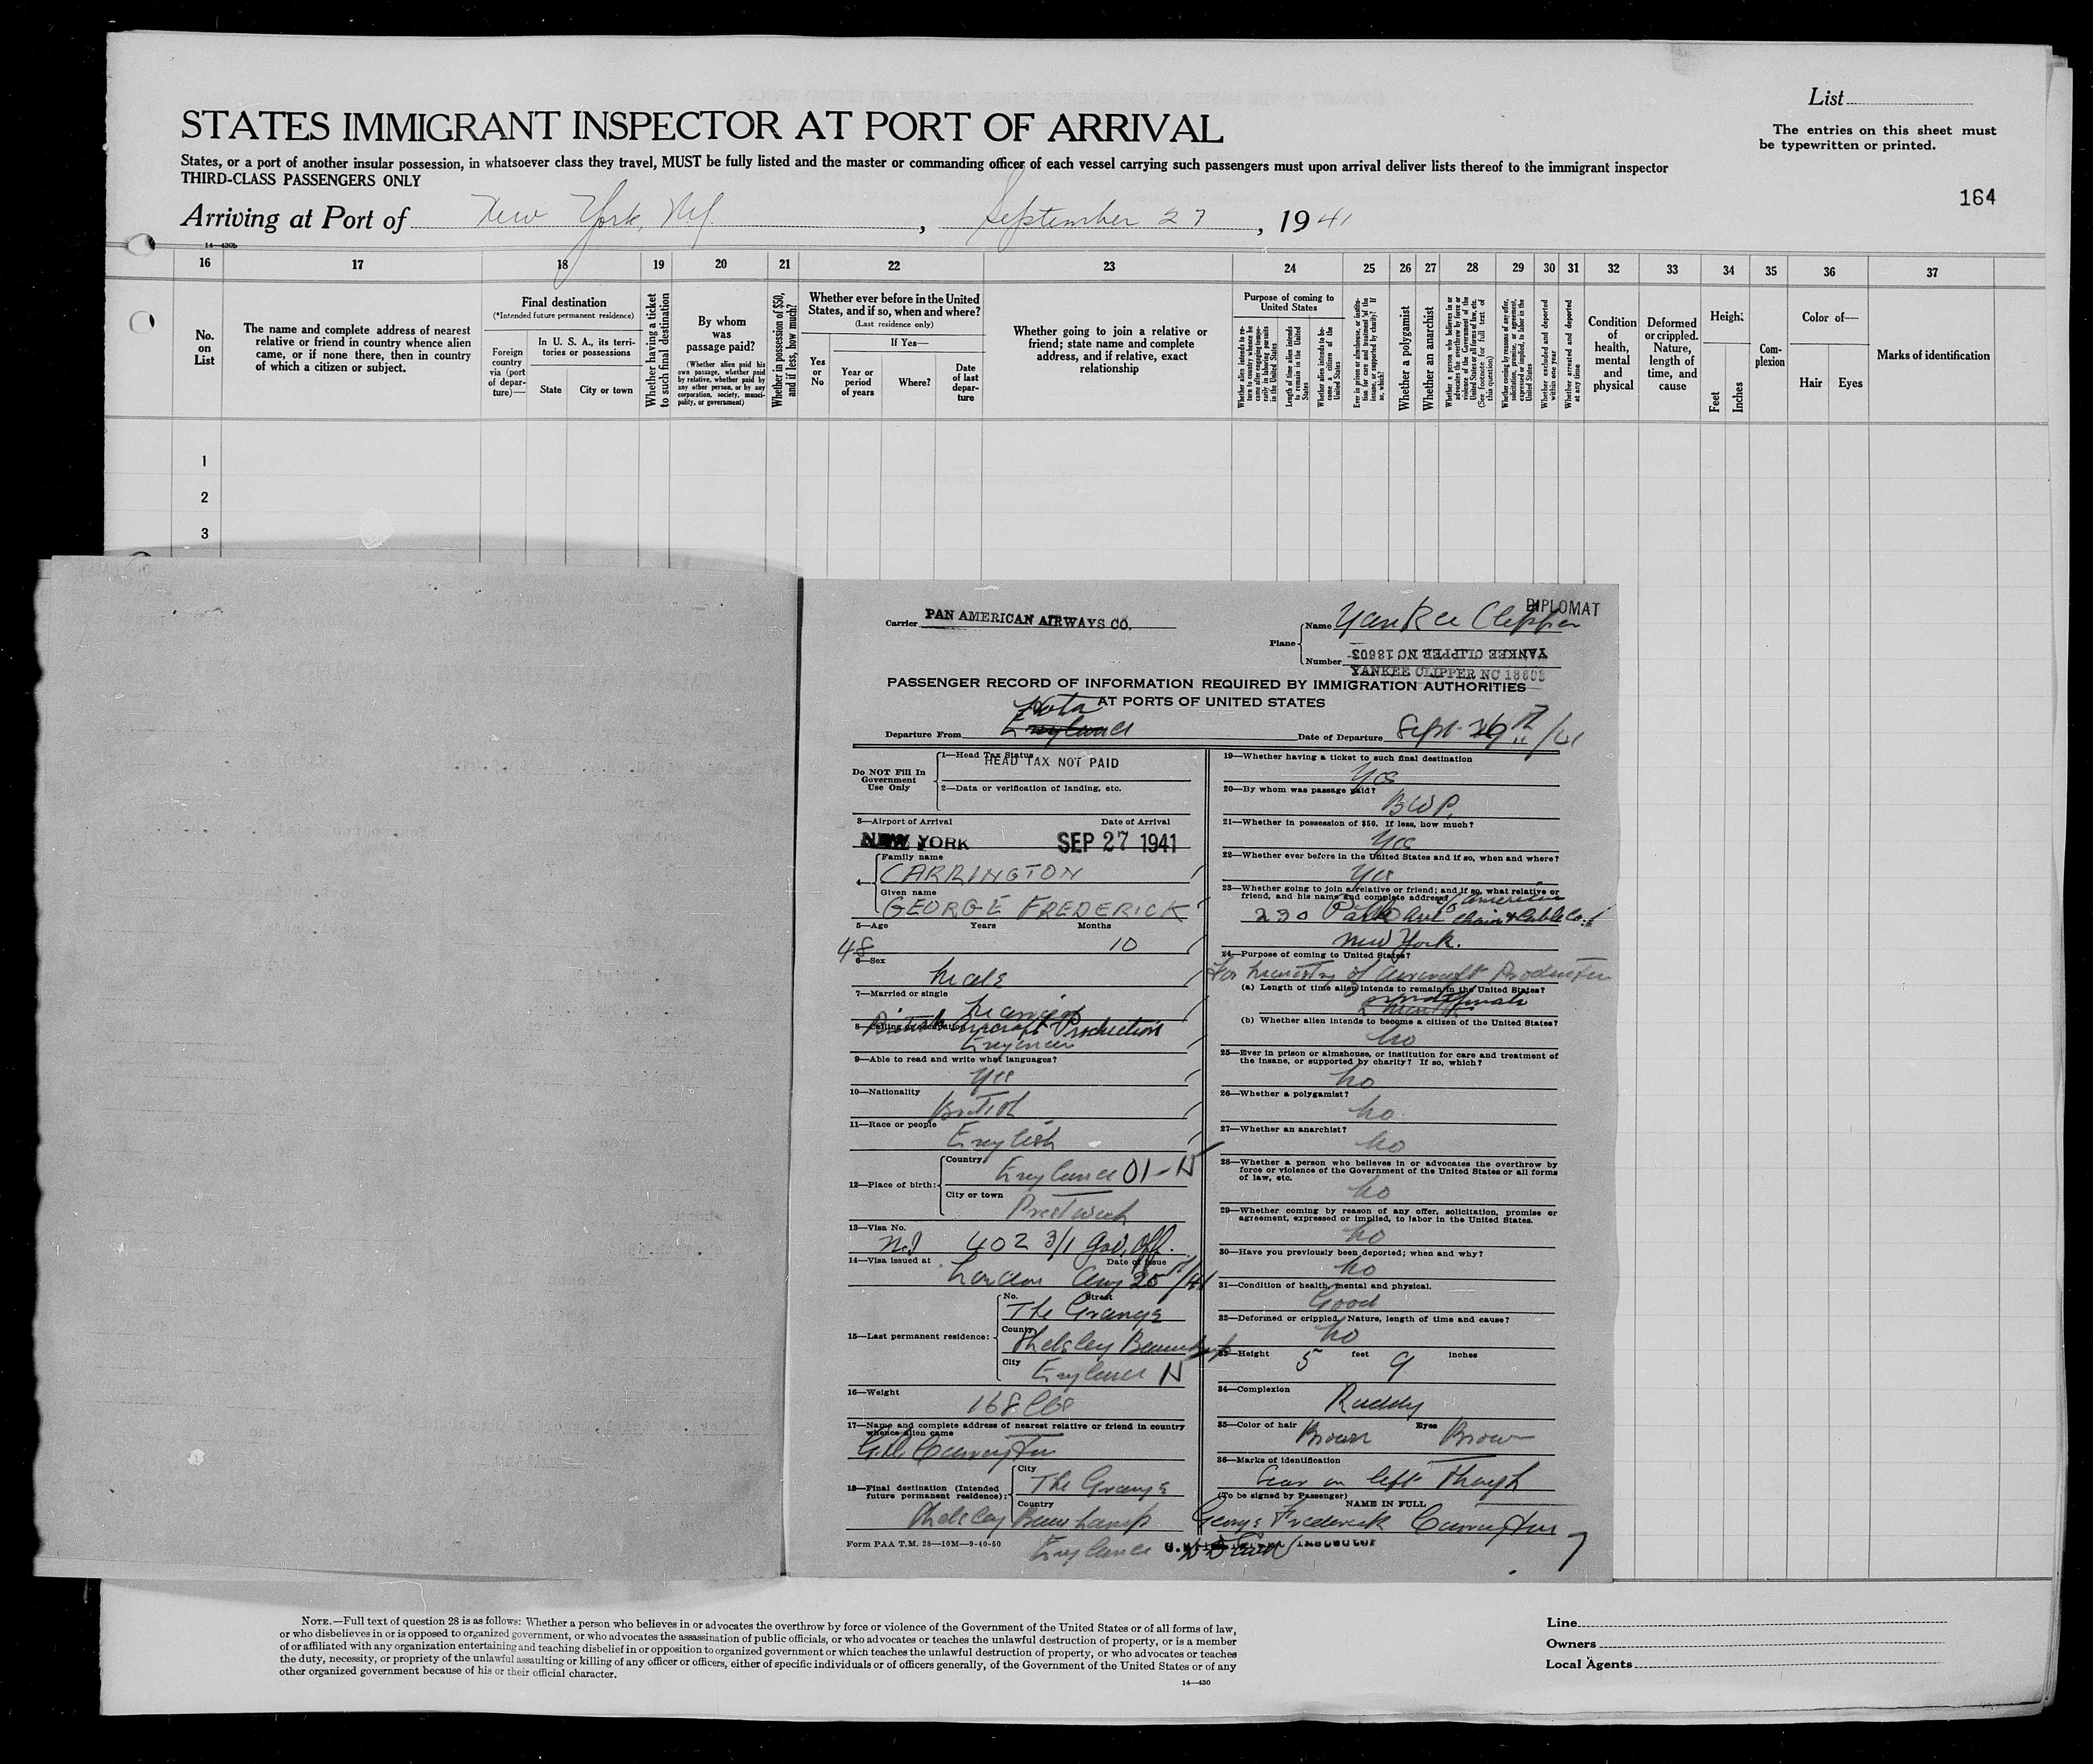 List
STATES IMMIGRANT INSPECTOR AT PORT OF ARRIVAL
The entries on this sheet must
be typewritten or printed.
States, or a port of another insular possession, in whatsoever class they travel, MUST be fully listed and the master or commanding officer of each vessel carrying such passengers must upon arrival deliver lists thereof to the immigrant inspector
THIRD-CLASS PASSENGERS ONLY
164
Arriving at Port of New York, N.Y., September 27, 1941
14—430b
16 17 18 19 20 21 22 23 24 25 26 27 28 29 30 31 32 33 34 35 36 37
No. on List
The name and complete address of nearest relative or friend in country whence alien came, or if none there, then in country of which a citizen or subject.
Final destination
(*Intended future permanent residence)
Foreign country via (port of departure)—
In U. S. A., its territories or possessions
State
City or town
Whether having a ticket to such final destination
By whom was passage paid?
(Whether alien paid his own passage, whether paid by relative, whether paid by any other person, or by any corporation, society, municipality, or government)
Whether in possession of $50, and if less, how much?
Whether ever before in the United States, and if so, when and where?
(Last residence only)
Yes or No
If Yes—
Year or period of years
Where?
Date of last departure
Whether going to join a relative or friend; state name and complete address, and if relative, exact relationship
Purpose of coming to United States
Whether alien intends to return to country whence he came after engaging temporarily in laboring pursuits in the United States
Length of time alien intends to remain in the United States
Whether alien intends to become a citizen of the United States
Ever in prison or almshouse, or institution for care and treatment of the insane, or supported by charity? If so, which?
Whether a polygamist
Whether an anarchist
Whether a person who believes in or advocates the overthrow by force or violence of the Government of the United States or all forms of law, etc. (See footnote for full text of this question)
Whether coming by reasons of any offer, solicitation, promise, or agreement, expressed or implied, to labor in the United States
Whether excluded and deported within one year
Whether arrested and deported at any time
Condition of health, mental and physical
Deformed or crippled. Nature, length of time, and cause
Height
Feet
Inches
Complexion
Color of—
Hair
Eyes
Marks of identification
1
2
3
DIPLOMAT
Carrier PAN AMERICAN AIRWAYS CO.
Plane
Name Yankee Clipper
Number YANKEE CLIPPER NC 18603
YANKEE CLIPPER NC 18603
PASSENGER RECORD OF INFORMATION REQUIRED BY IMMIGRATION AUTHORITIES
AT PORTS OF UNITED STATES
Departure From England
Date of Departure Sept. 26
Do NOT Fill In Government Use Only
1—Head Tax Status
HEAD TAX NOT PAID
2—Data or verification of landing, etc.
3—Airport of Arrival Date of Arrival
NEW YORK SEP 27 1941
4—
Family name
CARRINGTON
Given name
GEORGE FREDERICK
5—Age Years Months
48 10
6—Sex
Male
7—Married or single
Married
8—Calling or occupation
British Aircraft Production
Engineer
9—Able to read and write what languages?
Yes
10—Nationality
British
11—Race or people
English
12—Place of birth:
Country
England 01-N
City or town
Prestwich
13—Visa No.
402 3/1 Gov. Off.
14—Visa issued at Date of Issue
London Aug 25th/41
15—Last permanent residence:
No. Street
The Grange
County
Shelsley Beauchamp
City
England N
16—Weight
168 lbs
17—Name and complete address of nearest relative or friend in country whence alien came
Carrington
18—Final destination (Intended future permanent residence):
City
The Grange
Country
Shelsley Beauchamp
England
Form PAA T.M. 28—10M—9-40-50
19—Whether having a ticket to such final destination
Yes
20—By whom was passage paid?
BWP.
21—Whether in possession of $50. If less, how much?
Yes
22—Whether ever before in the United States and if so, when and where?
Yes
23—Whether going to join a relative or friend; and if so, what relative or friend, and his name and complete address?
c/o American
230 Park Ave Chain & Cable Co.
New York.
24—Purpose of coming to United States?
For Ministry of Aircraft Production
(a) Length of time alien intends to remain in the United States?
(b) Whether alien intends to become a citizen of the United States?
No
25—Ever in prison or almshouse, or institution for care and treatment of the insane, or supported by charity? If so, which?
No
26—Whether a polygamist?
No
27—Whether an anarchist?
No
28—Whether a person who believes in or advocates the overthrow by force or violence of the Government of the United States or all forms of law, etc.
No
29—Whether coming by reason of any offer, solicitation, promise or agreement, expressed or implied, to labor in the United States.
No
30—Have you previously been deported; when and why?
No
31—Condition of health, mental and physical.
Good
32—Deformed or crippled. Nature, length of time and cause?
No
33—Height 5 feet 9 inches
34—Complexion
Ruddy
35—Color of hair Brown Eyes Brown
36—Marks of identification
Scar on left Thaigh
(To be signed by Passenger)
NAME IN FULL
George Frederick Carrington
NOTE.—Full text of question 28 is as follows: Whether a person who believes in or advocates the overthrow by force or violence of the Government of the United States or of all forms of law,
or who disbelieves in or is opposed to organized government, or who advocates the assassination of public officials, or who advocates or teaches the unlawful destruction of property, or is a member
of or affiliated with any organization entertaining and teaching disbelief in or opposition to organized government or which teaches the unlawful destruction of property, or who advocates or teaches
the duty, necessity, or propriety of the unlawful assaulting or killing of any officer or officers, either of specific individuals or of officers generally, of the Government of the United States or of any
other organized government because of his or their official character.
14—430
Line
Owners
Local Agents